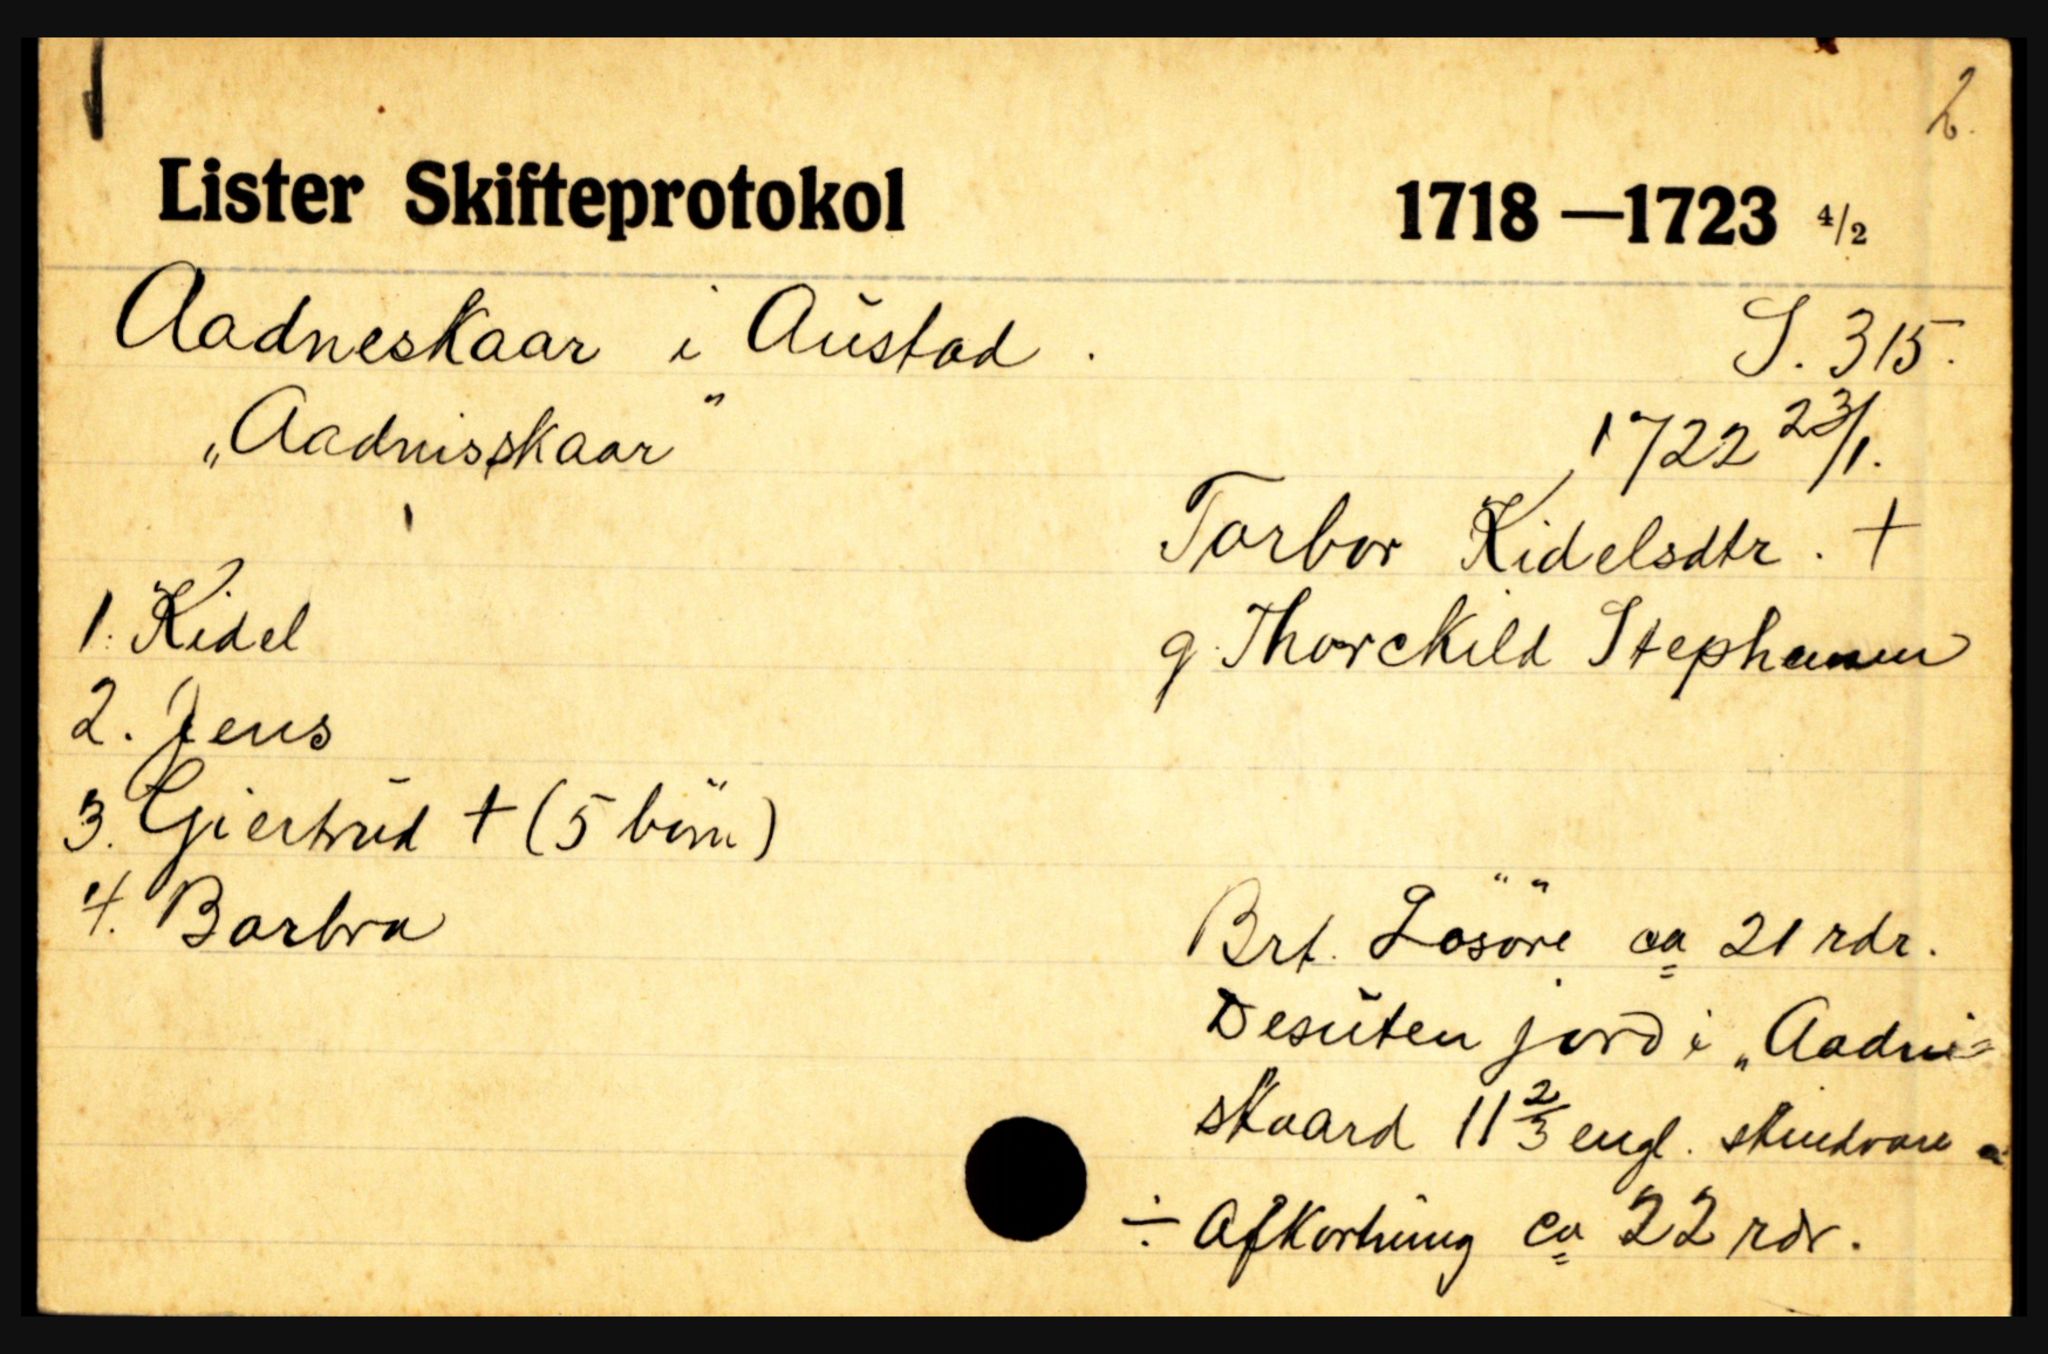 2.
Lister Skifteprotokol 1718—1723 4/2
Aadneskaar i Austad. S. 315.
„Aadnisskaar" 1722 23/1.
Torbor Kidelsdtr. †
1. Kidel g. Thorckild Stephensen
2. Jens
3. Giertrud † (5 börn)
4. Barbra
Brt. Lösöre ca 21 rdr.
Desuten jord i „Aadni-
skaard 11 2/3 engl. skindvare
÷ Afkortning ca 22 rdr.